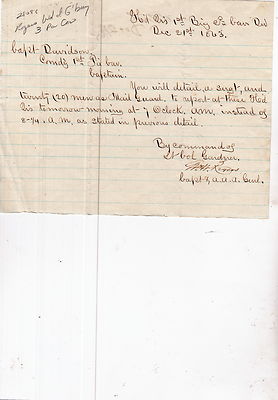 Hd Qrs 1st Brig 2d Cav Div
Dec 21st 1863.
3 Pa Cav
Capt. Davidson,
Comdg 1st Pa Cav.
Captain.
You will detail, a Sergt, and
twenty (20) men as Mail Guard. to report at these Hd
Qrs tomorrow morning at 7 O'clock, A.M, instead of
8-¼. A.M, as stated in previous detail.
By command of
Lt Col Gardner.
Capt & A.A.A. Genl.